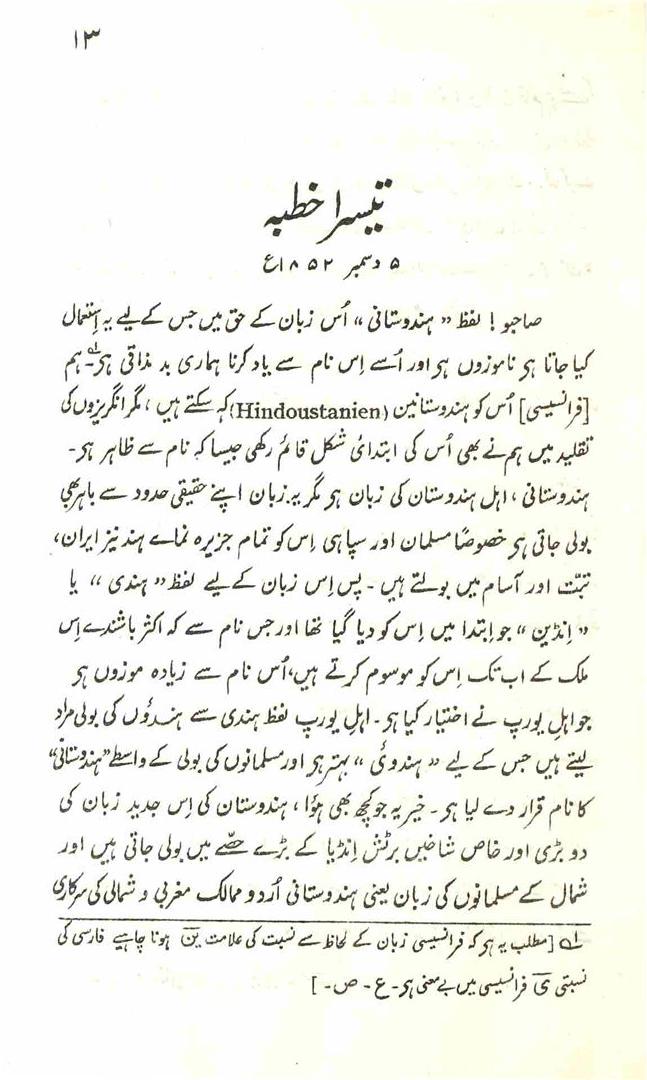 ۱۳
تیسرا خطبہ
۵ دسمبر ۱۸۵۲ع
صاحبو! لفظ "ہندوستانی" اُس زبان کے حق میں جس کے لیے یہ اِستعمال
کیا جاتا ہو ناموزوں ہو اور اُسے اِس نام سے یاد کرنا ہماری بد مذاقی ہو۔ؔ۱ ہم
[فرانسیسی] اُس کو ہندوستانین (Hindoustanien) کہہ سکتے ہیں، مگر انگریزوں کی
تقلید میں ہم نے بھی اُس کی ابتدائی شکل قائم رکھی جیسا کہ نام سے ظاہر ہو۔
ہندوستانی، اہل ہندوستان کی زبان ہو مگر یہ زبان اپنے حقیقی حدود سے باہر بھی
بولی جاتی ہو خصوصًا مسلمان اور سپاہی اِس کو تمام جزیرہ نمائے ہند نیز ایران،
تبّت اور آسام میں بولتے ہیں۔ پس اِس زبان کے لیے لفظ "ہندی" یا
"اِنڈین" جو اِبتدا میں اِس کو دیا گیا تھا اور جس نام سے کہ اکثر باشندے اِس
ملک کے اب تک اِس کو موسوم کرتے ہیں، اُس نام سے زیادہ موزوں ہو
جو اہلِ یورپ نے اختیار کیا ہو۔ اہلِ یورپ لفظ ہندی سے ہندوؤں کی بولی مراد
لیتے ہیں جس کے لیے "ہندوئی" بہتر ہو اور مسلمانوں کی بولی کے واسطے "ہندوستانی"
کا نام قرار دے لیا ہو۔ خیر یہ جو کچھ بھی ہوُا، ہندوستان کی اِس جدید زبان کی
دو بڑی اور خاص شاخیں برٹش اِنڈیا کے بڑے حصّے میں بولی جاتی ہیں اور
شمال کے مسلمانوں کی زبان یعنی ہندوستانی اُردو ممالک مغربی و شمالی کی سرکاری
۱ؔ [مطلب یہ ہو کہ فرانسیسی زبان کے لحاظ سے نسبت کی علامت یَن ہونا چاہیے فارسی کی
نسبتی یَ فرانسیسی میں بے معنی ہو۔ ع۔ ص۔]